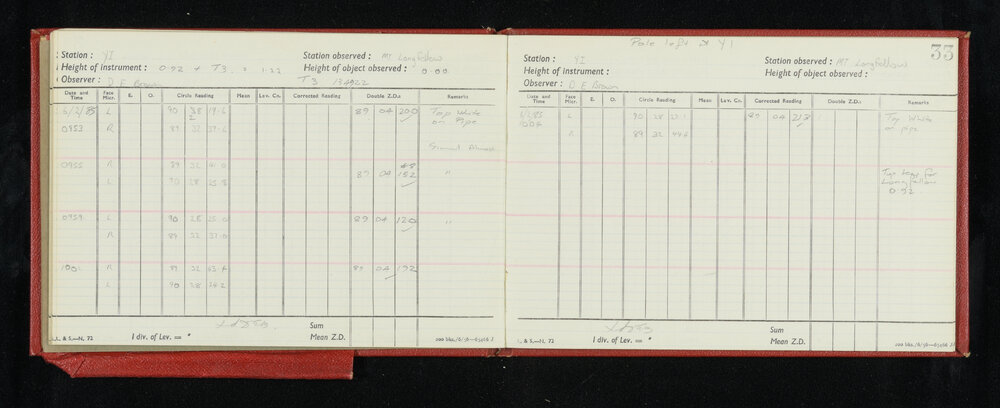 Station : YI
Station observed : Mt Longfellow
Height of instrument : 0.92 + T3 = 1.22
Height of object observed : 0.00
Observer : D E Brown
T3
Date and Time Face Micr. E. O. Circle Reading Mean Lev. Co. Corrected Reading Double Z.D.s Remarks
6/2/85 L 90 28 19.6 89 04 200 Top White
on Pipe
0953 R 89 32 37.6
Signal Almost
0955 R 89 32 41.0
89 04 152 "
L 90 28 25.8
0959 L 90 28 25.0 89 04 120 "
R 89 32 37.0
R 89 32 43.4 89 04 192
L 90 28 24.2
1 div. of Lev. = "
Sum
Mean Z.D.
L. & S.—N. 72
200 bks./6/56—65066 J
Pole left at YI
33
Station : YI
Station observed : Mt Longfellow
Height of instrument :
Height of object observed :
Observer : D E Brown
Date and Time Face Micr. E. O. Circle Reading Mean Lev. Co. Corrected Reading Double Z.D.s Remarks
L 90 28 23.1 89 04 213 Top White
on pipe
1004
R 89 32 44.6
Longfellow
0.92
1 div. of Lev. = "
Sum
Mean Z.D.
L. & S.—N. 72
200 bks./6/56—65066 J